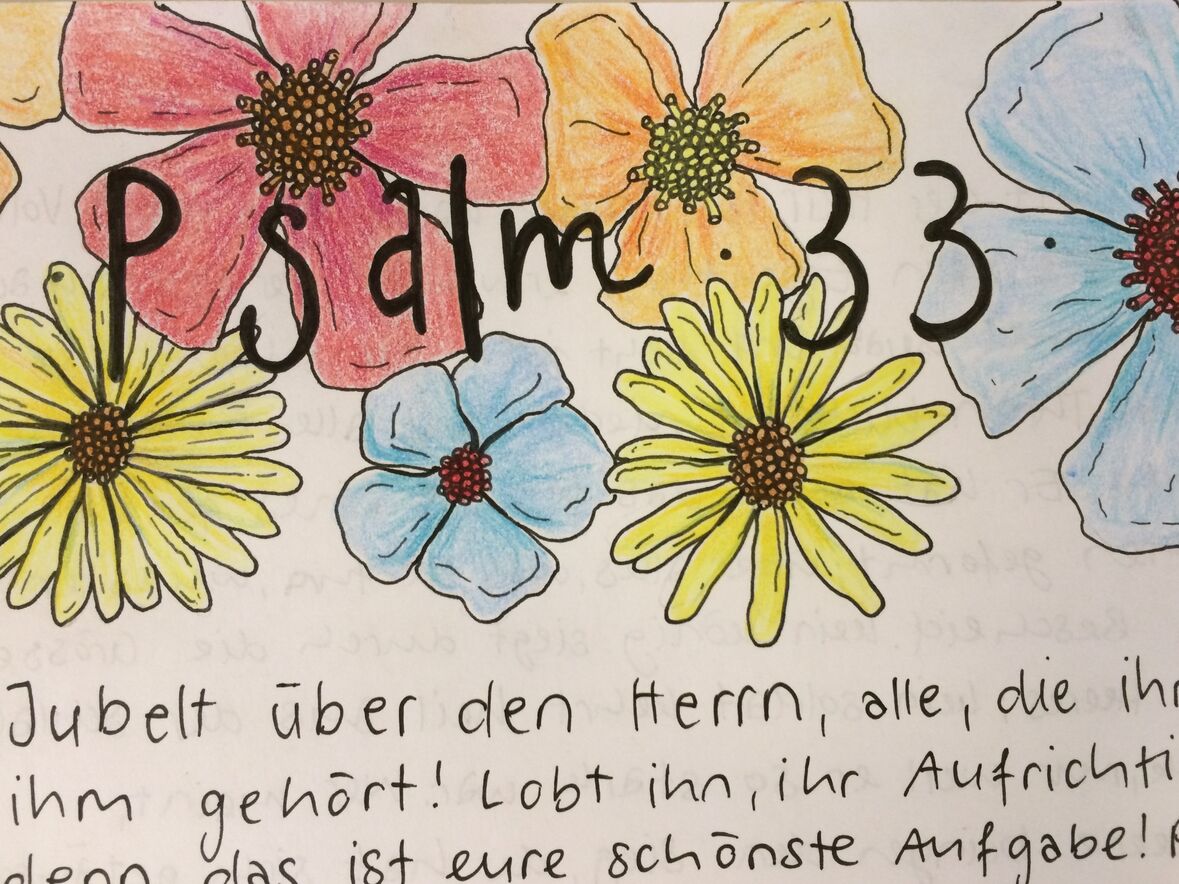 Psalm · 33 ·
Jubelt über den Herrn, alle, die ihr
ihm gehört! Lobt ihn, ihr Aufrichti
denn das ist eure schönste Aufgabe!